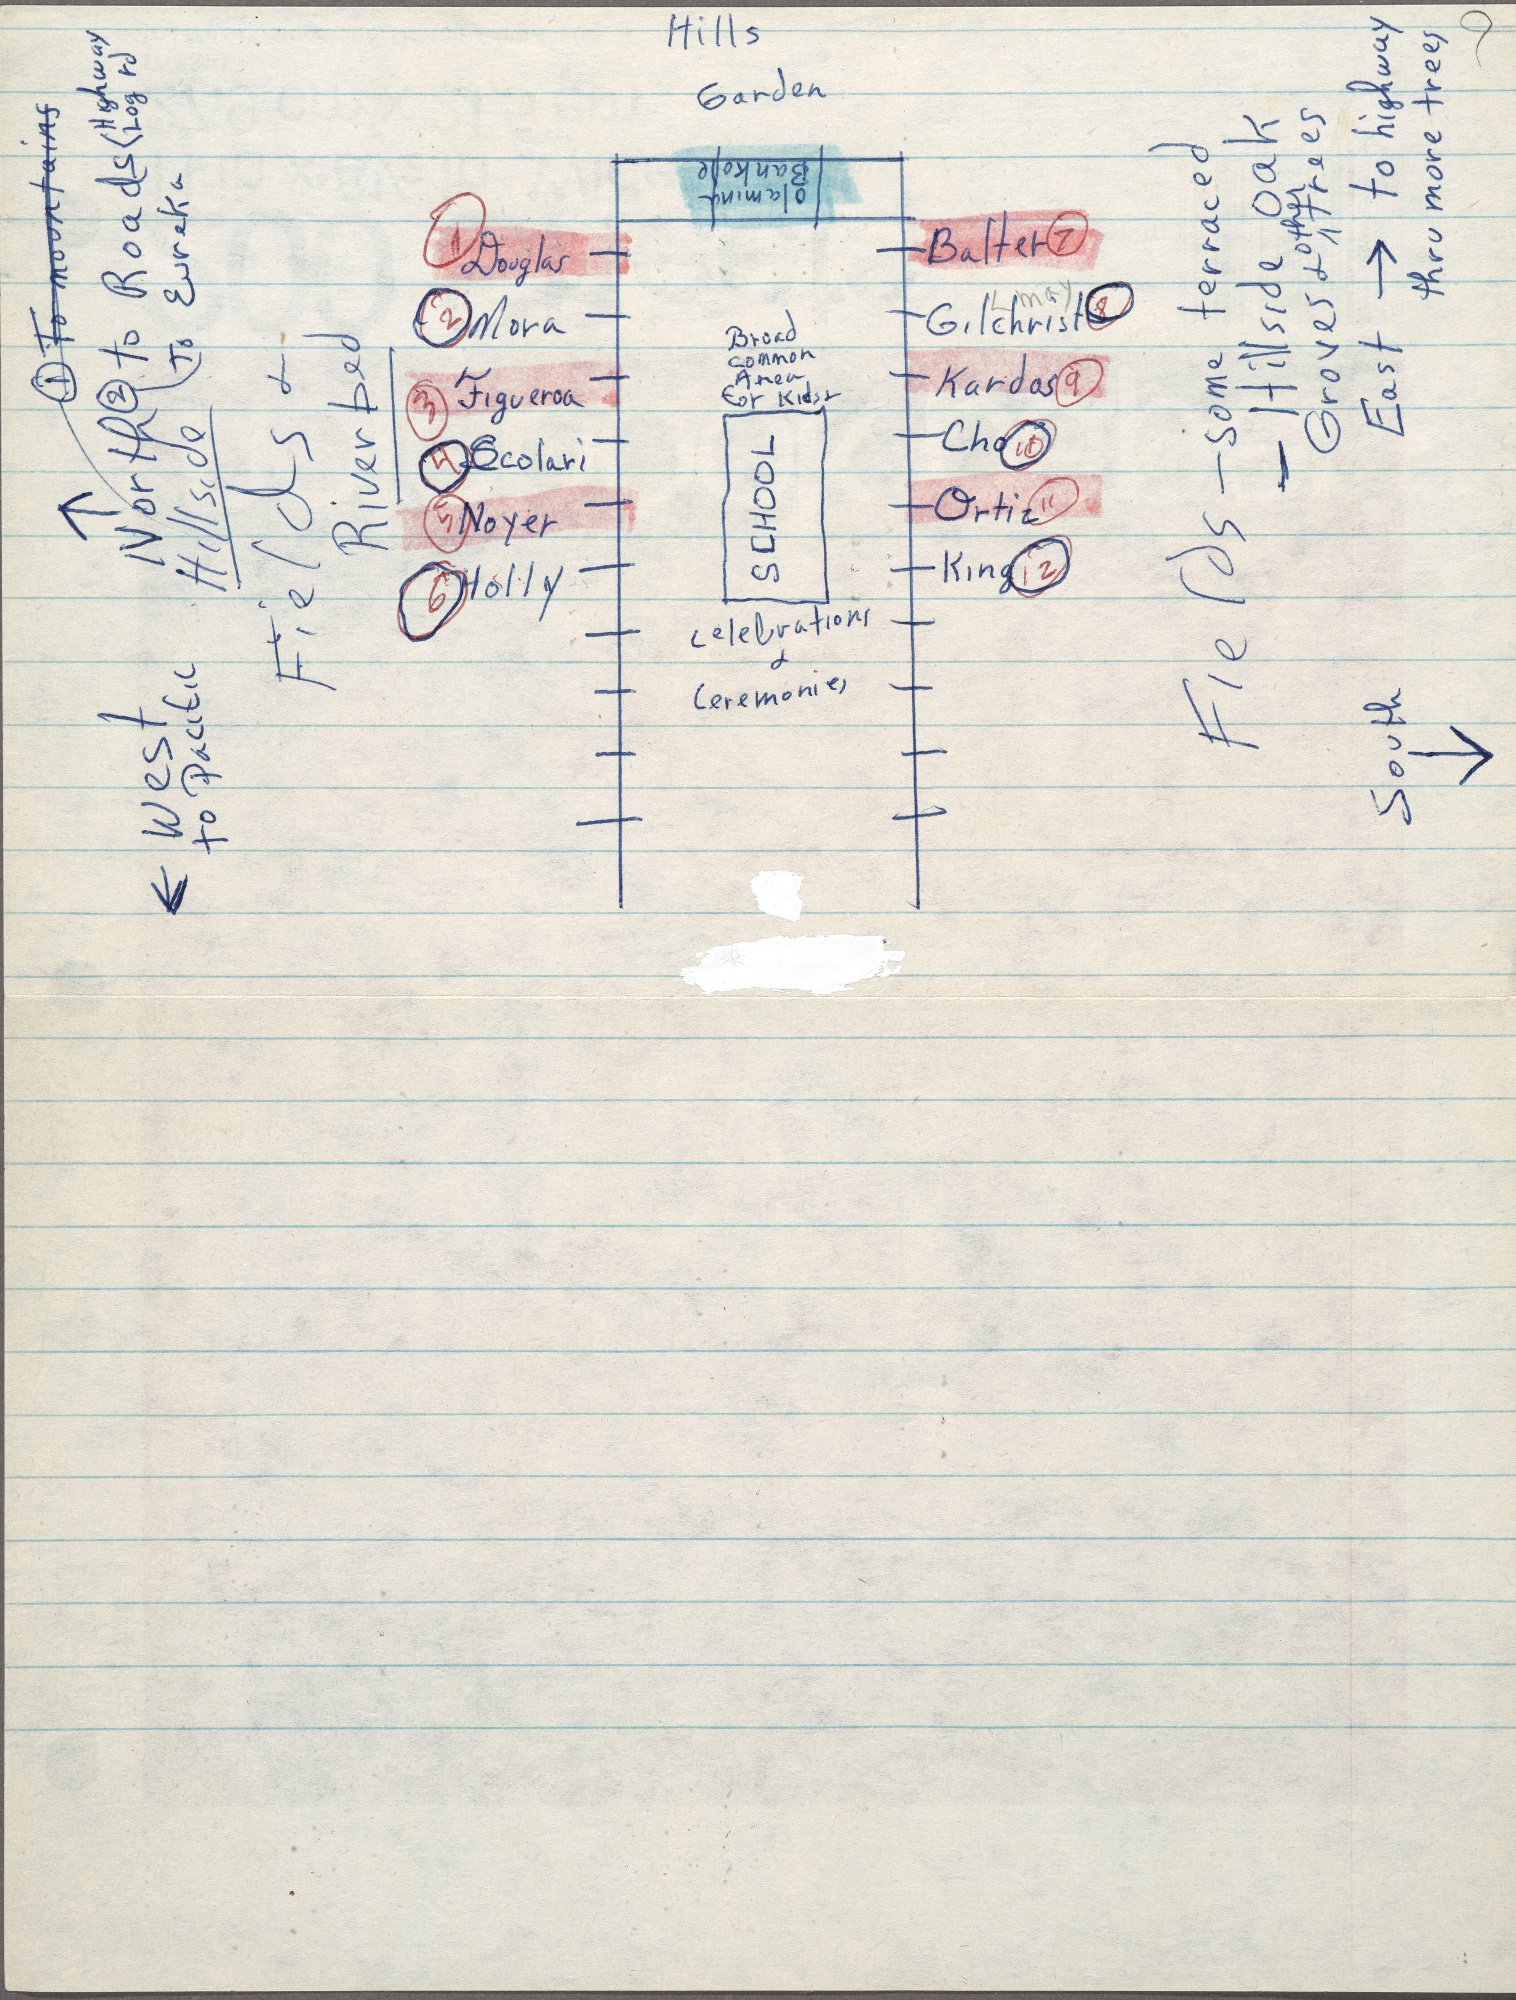 Hills
Garden
Olamina
Bankole
1 Douglas
2 Mora
3 Figueroa
4 Scolari
5 Noyer
6 Holly
Balter 7
Gilchrist 8
Kardos 9
Cho 10
Ortiz 11
King 12
Broad
common
Area
for Kids+
SCHOOL
celebrations
&
ceremonies
① To mountains
North ② to Roads < Highway
Log rd
(To Eureka
Hillside
Fields &
Riverbed
West
to Pacific
Fields - some terraced
- Hillside Oak
Groves & other trees
East → to highway
thru more trees
South